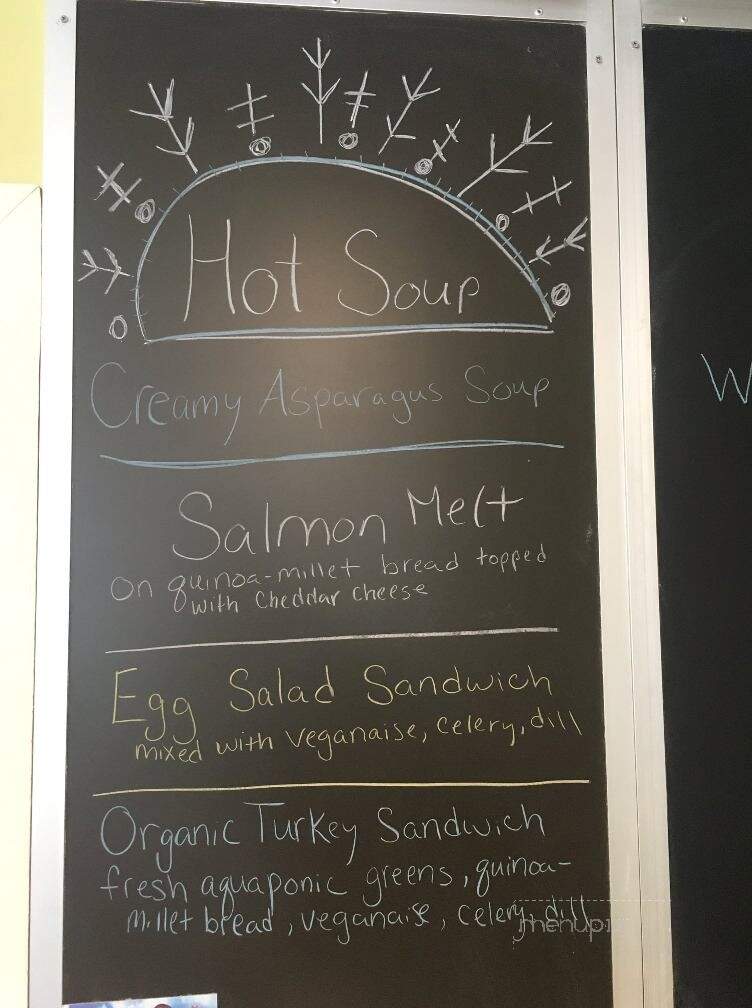 Hot Soup
Creamy Asparagus Soup
Salmon Melt
on quinoa-millet bread topped
with cheddar cheese
Egg Salad Sandwich
mixed with veganaise, celery, dill
Organic Turkey Sandwich
fresh aquaponic greens, quinoa-
millet bread, veganaise, celery, dill
W